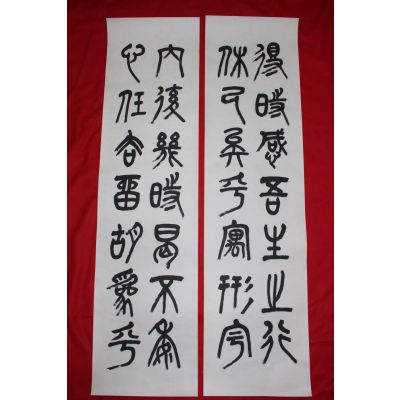 得時感吾生之行
休已矣乎寓形宇
內復幾時曷不委
心任去留胡爲乎